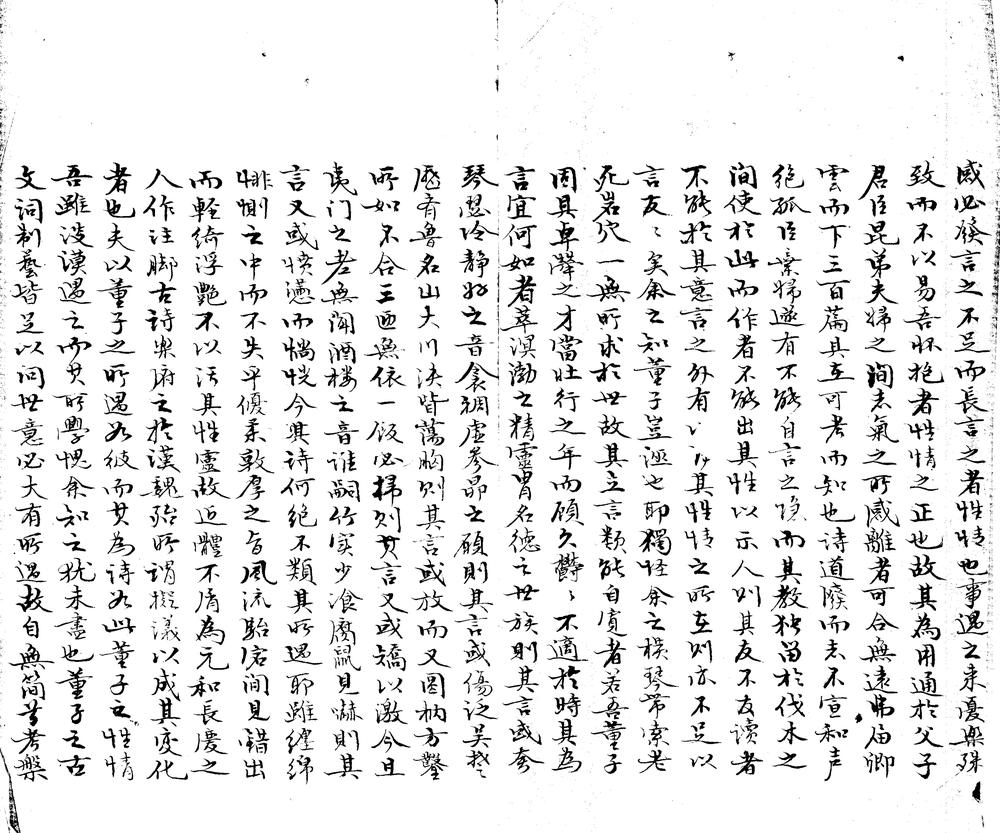 感必發言之不足而長言之者性情也事遇之来憂樂殊
致而不以易吾所抱者性情之正也故其為用通於父子
君臣昆弟夫婦之間志氣之所感離者可合無遠弗届卿
雲而下三百篇具在可考而知也詩道廢而志不宣和声
絶孤臣嫠婦遂有不能自言之隐而其教独留於伐木之
間使於此而作者不能出其性以示人则其友不友讀者
不能於其意言之外有以得其性情之所在则亦不足以
言友友矣余之知董子豈誣也耶獨怪余之横琴帶索老
死岩穴一無所求於世故其立言類能自寛者若吾董子
因具卓犖之才當壮行之年而顧久欝欝不適於時其為
言宜何如者萃溟渤之精靈胄名德之世族则其言或夸
琴瑟泠静好之音衾裯虚参昴之顧則其言或傷泛吴楚
歷齊魯名山大川决眥蕩胸则其言或放而又圆枘方鑿
所如不合三迺無依一飯必掃则其言又或矯以激今且
夷门之老無聞酒楼之音谁嗣竹实少飡腐鼠見嚇則其
言又或愤懣而惝恍今其诗何絶不類其所遇耶雖纏绵
悱恻之中而不失乎優柔敦厚之旨風流駘宕间見錯出
而軽绮浮艷不以汚其性靈故近體不屑為元和長慶之
人作注脚古詩樂府之於漢魏殆所謂擬議以成其变化
者也夫以董子之所遇如彼而其為诗如此董子之性情
吾雖漠漠遇之而其所學愧余知之犹未盡也董子之古
文词制藝皆足以问世意必大有所遇故自無简兮考槃